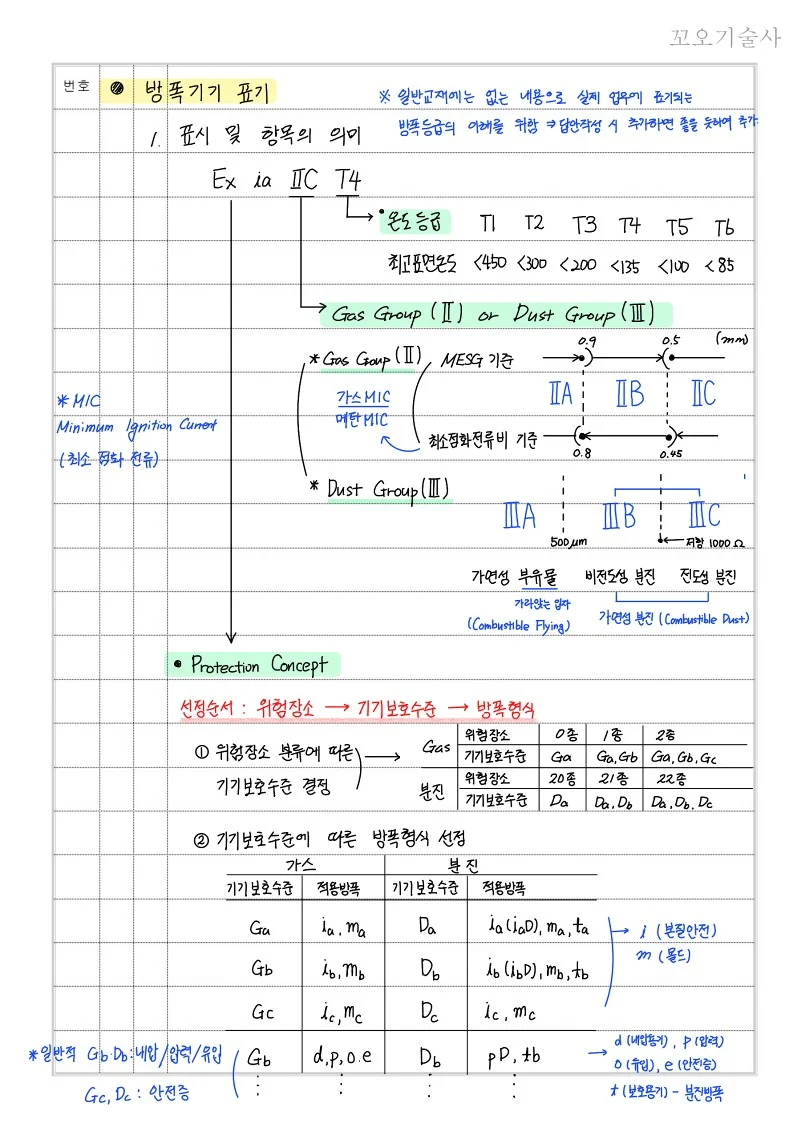 꼬오기술사
번호
방폭기기 표기
※ 일반교재에는 없는 내용으로 실제 업무에 표기되는
방폭등급의 이해를 위함 ⇒ 답안작성 시 추가하면 좋을 듯하여 추가.
1. 표시 및 항목의 의미
Ex ia ⅡC T4
온도등급 T1 T2 T3 T4 T5 T6
최고표면온도 <450 <300 <200 <135 <100 <85
Gas Group (Ⅱ) or Dust Group (Ⅲ)
0.9 0.5 (mm)
* Gas Group (Ⅱ) MESG 기준
ⅡA ⅡB ⅡC
가스MIC
메탄MIC
* MIC
Minimum Ignition Current
(최소 점화 전류)
최소점화전류비 기준
0.8 0.45
* Dust Group (Ⅲ)
ⅢA ⅢB ⅢC
500㎛ 저항 1000 Ω
가연성 부유물 비전도성 분진 전도성 분진
가라앉는 입자
(Combustible Flying) 가연성 분진 (Combustible Dust)
• Protection Concept
선정순서 : 위험장소 → 기기보호수준 → 방폭형식
① 위험장소 분류에 따른
기기보호수준 결정
Gas 위험장소 0종 1종 2종
기기보호수준 Ga Ga, Gb Ga, Gb, Gc
분진 위험장소 20종 21종 22종
기기보호수준 Da Da, Db Da, Db, Dc
② 기기보호수준에 따른 방폭형식 선정
가스 분진
기기보호수준 적용방폭 기기보호수준 적용방폭
Ga ia, ma Da ia(iaD), ma, ta
Gb ib, mb Db ib(ibD), mb, tb
Gc ic, mc Dc ic, mc
i (본질안전)
m (몰드)
Gb d, p, o. e Db pD, tb
*일반적 Gb·Db : 내압/압력/유입
Gc, Dc : 안전증
d (내압용기), p (압력)
o (유입), e (안전증)
t (보호용기) - 분진방폭